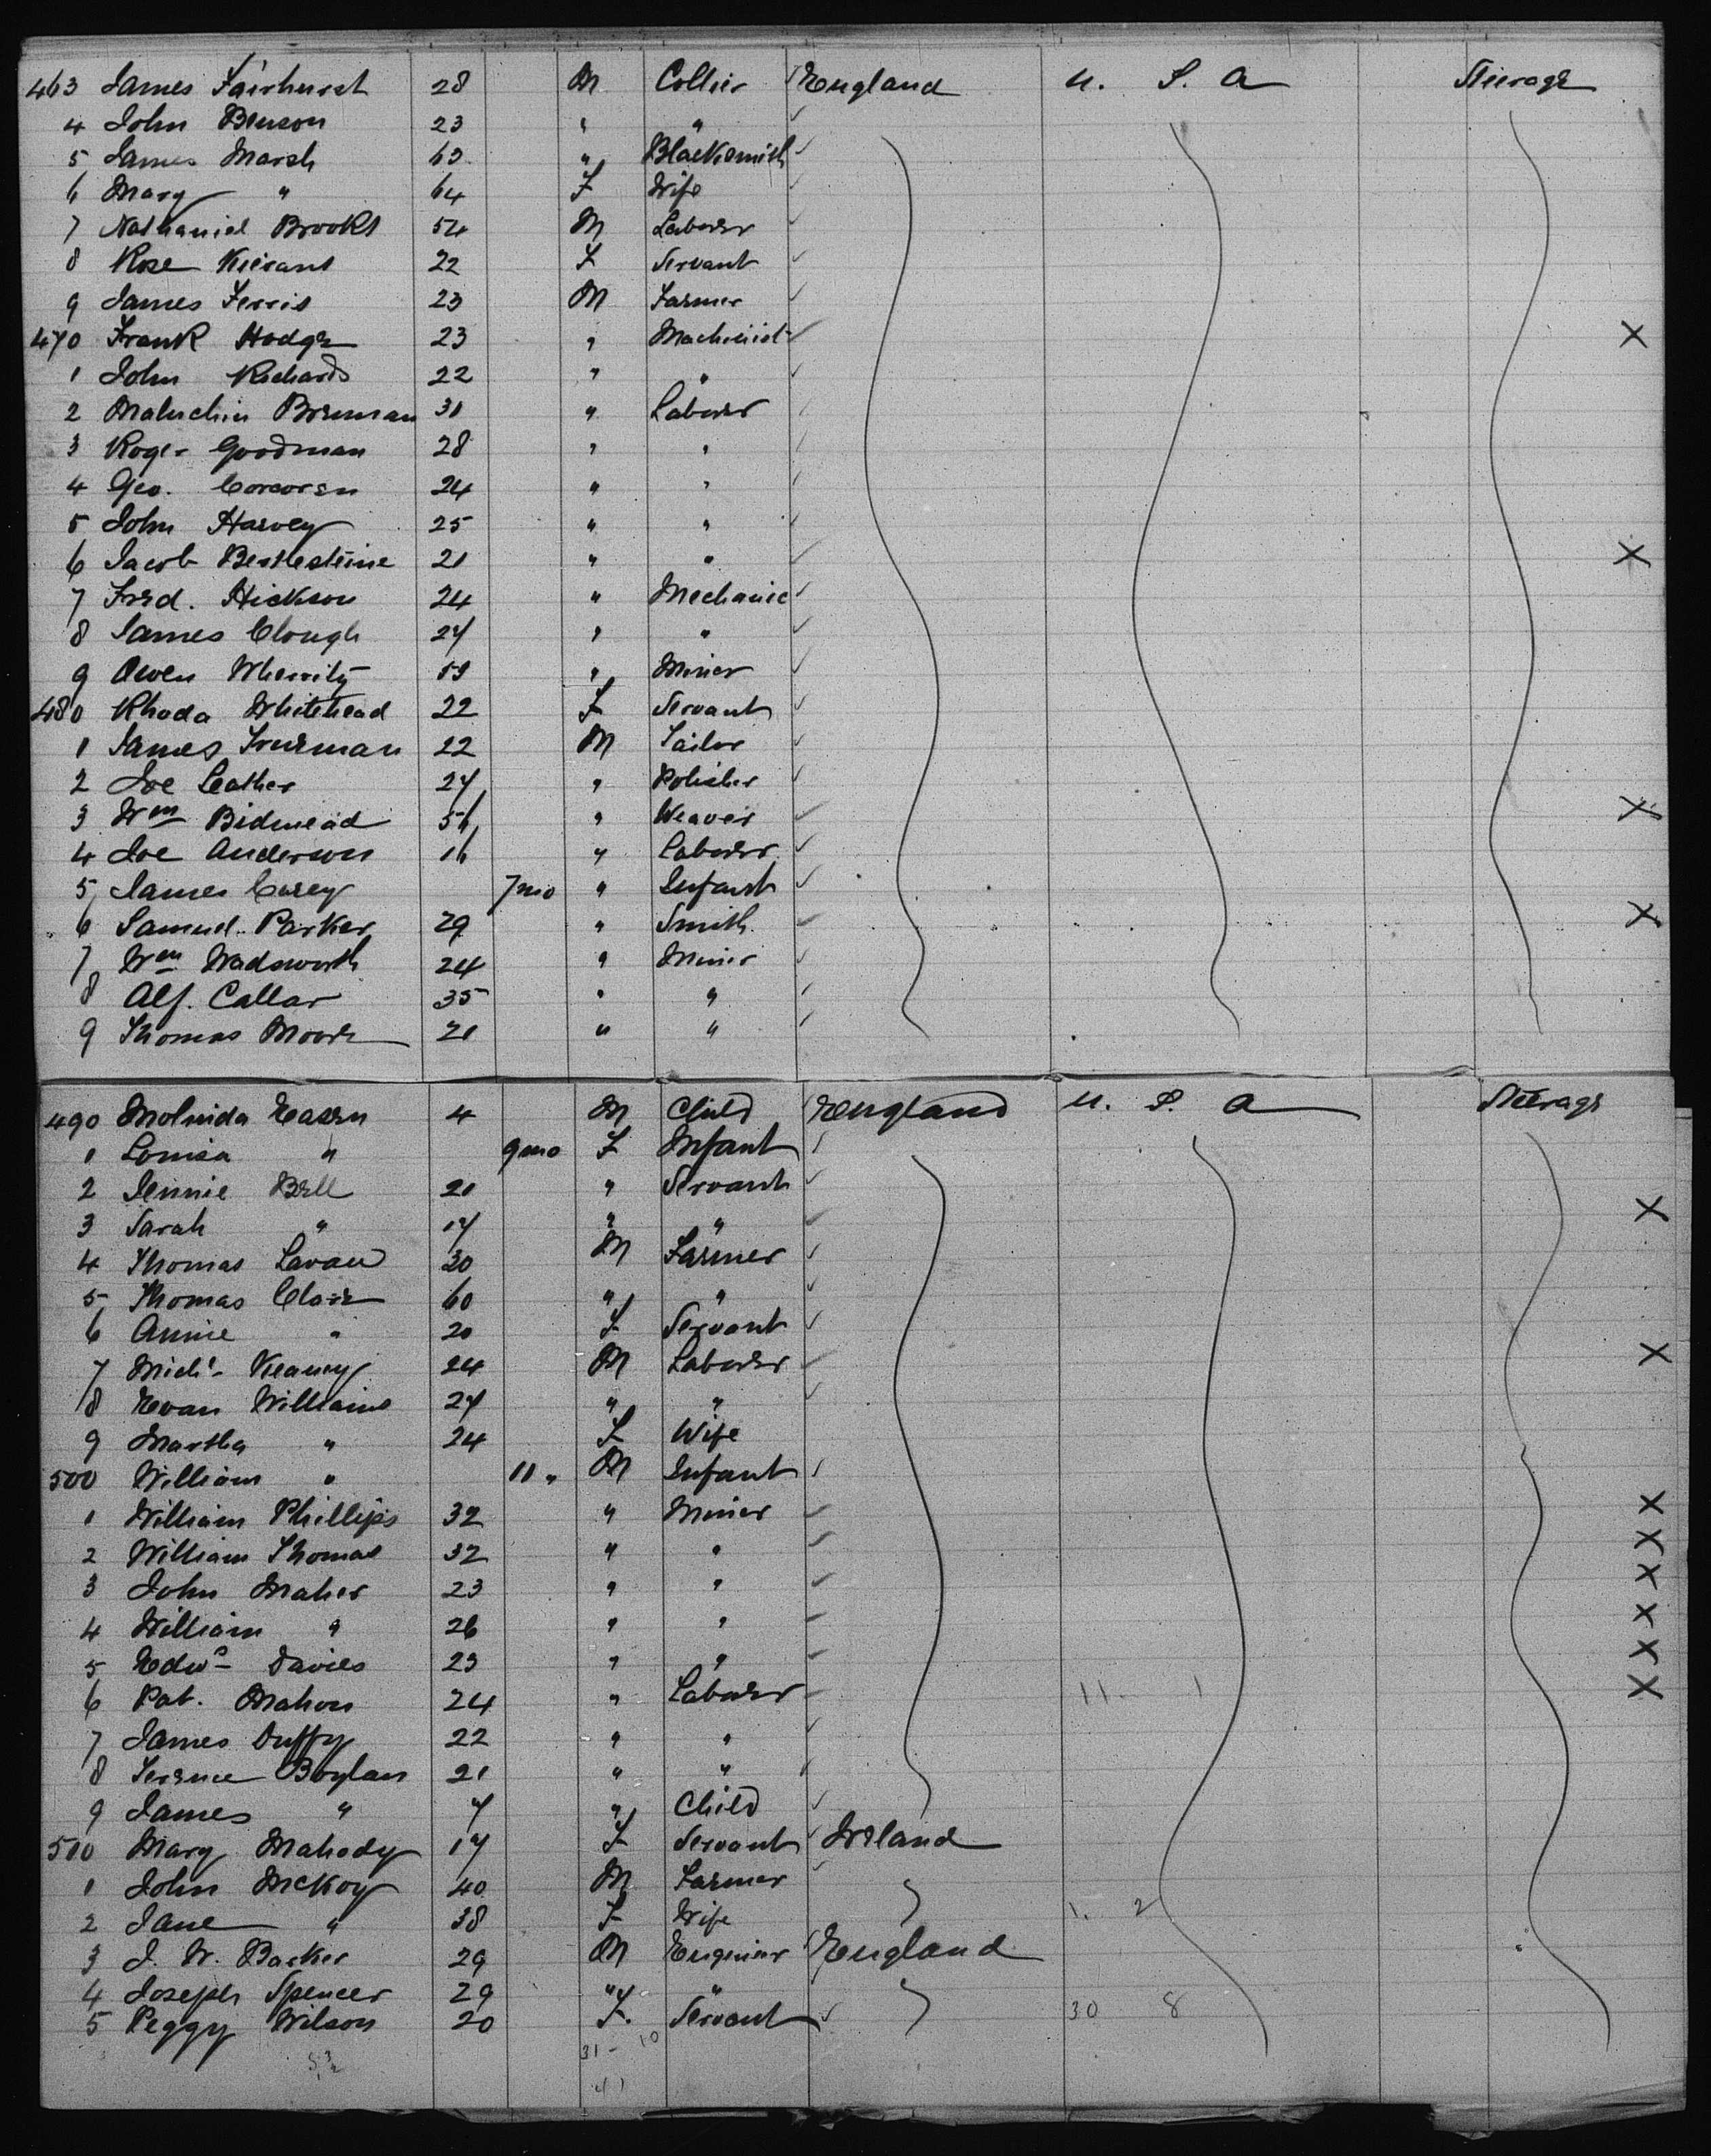 463 James Fairhurst 28 M Collier England U. S. A Steerage
4 John Benson 23 " "
5 James Marsh 63 " Blacksmith
6 Mary " 64 F Wife
7 Nathaniel Brooks 54 M Laborer
8 Rose Kierans 22 F Servant
9 James Ferris 23 M Farmer
470 Frank Hodge 23 " Machinist X
1 John Richards 22 " "
2 Brennan 31 " Laborer
3 Roger Goodman 28 " "
4 Geo. Corcoran 24 " "
5 John Harvey 25 " "
6 Jacob 21 " " X
7 Fred. Hickson 24 " Mechanic
8 James Clough 27 " "
9 Owen " Miner
480 Rhoda Whitehead 22 F Servant
1 James 22 M
2 Joe Leather 27 " Polisher
3 Wm Bidmead 56 " Weaver X
4 Joe Anderson 16 " Laborer
5 James Carey 7 mo " Infant
6 Samuel Parker 29 " Smith X
7 Wm Wadsworth 24 " Miner
8 Alf. Callar 35 " "
9 Thomas Moore 21 " "
490 4 M Child England U. S. A Steerage
1 Louisa " 9 mo F Infant
2 Jennie Bell 21 " Servant X
3 Sarah " 17 " "
4 Thomas 30 M Farmer
5 Thomas Clare 60 " "
6 Annie " 20 F Servant
7 Michl Keaney 24 M Laborer X
8 Evan Williams 27 " "
9 Martha " 24 F Wife
500 William " 11 " M Infant
1 William Phillips 32 " Miner X
2 William Thomas 32 " " X
3 John Maher 23 " " X
4 William " 26 " " X
5 Edwd Davies 23 " " X
6 Pat. Mahon 24 " Laborer 11 1 X
7 James Duffy 22 " "
8 Terence Boylan 21 " "
9 James " 7 " Child
510 Mary Mahody 17 F Servant Ireland
1 John McKoy 40 M Farmer
2 Jane " 38 F Wife 1. 2
3 J. W. Barker 29 M Engineer England
4 Joseph Spencer 29 " "
5 Peggy Wilson 20 F. Servant 30 8
31 - 10
41